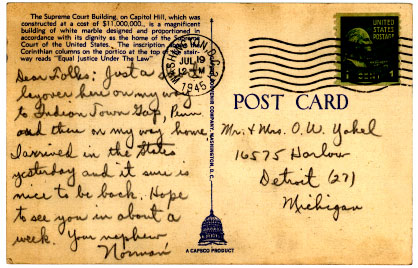 The Supreme Court Building, on Capitol Hill, which was
constructed at a cost of $11,000,000., is a magnificent
building of white marble designed and proportioned in
accordance with its dignity as the home of the Supreme
Court of the United States. The inscription above the
Corinthian columns on the portico at the top of the stair-
way reads "Equal Justice Under The Law"
Dear Folks: Just a
layover here on my way
to Indian Town Gap, Penn
and then on my way home.
I arrived in the States
yesterday and it sure is
nice to be back. Hope
to see you in about a
week. Your nephew
Norman
WASHINGTON, D.C.
JUL 19
M
1945
UNITED STATES
POSTAGE
1 CENT 1
POST CARD
Mr. & Mrs. O. W. Yokel
16575 Harlow
Detroit (27)
Michigan
WASHINGTON, D.C.
A CAPSCO PRODUCT